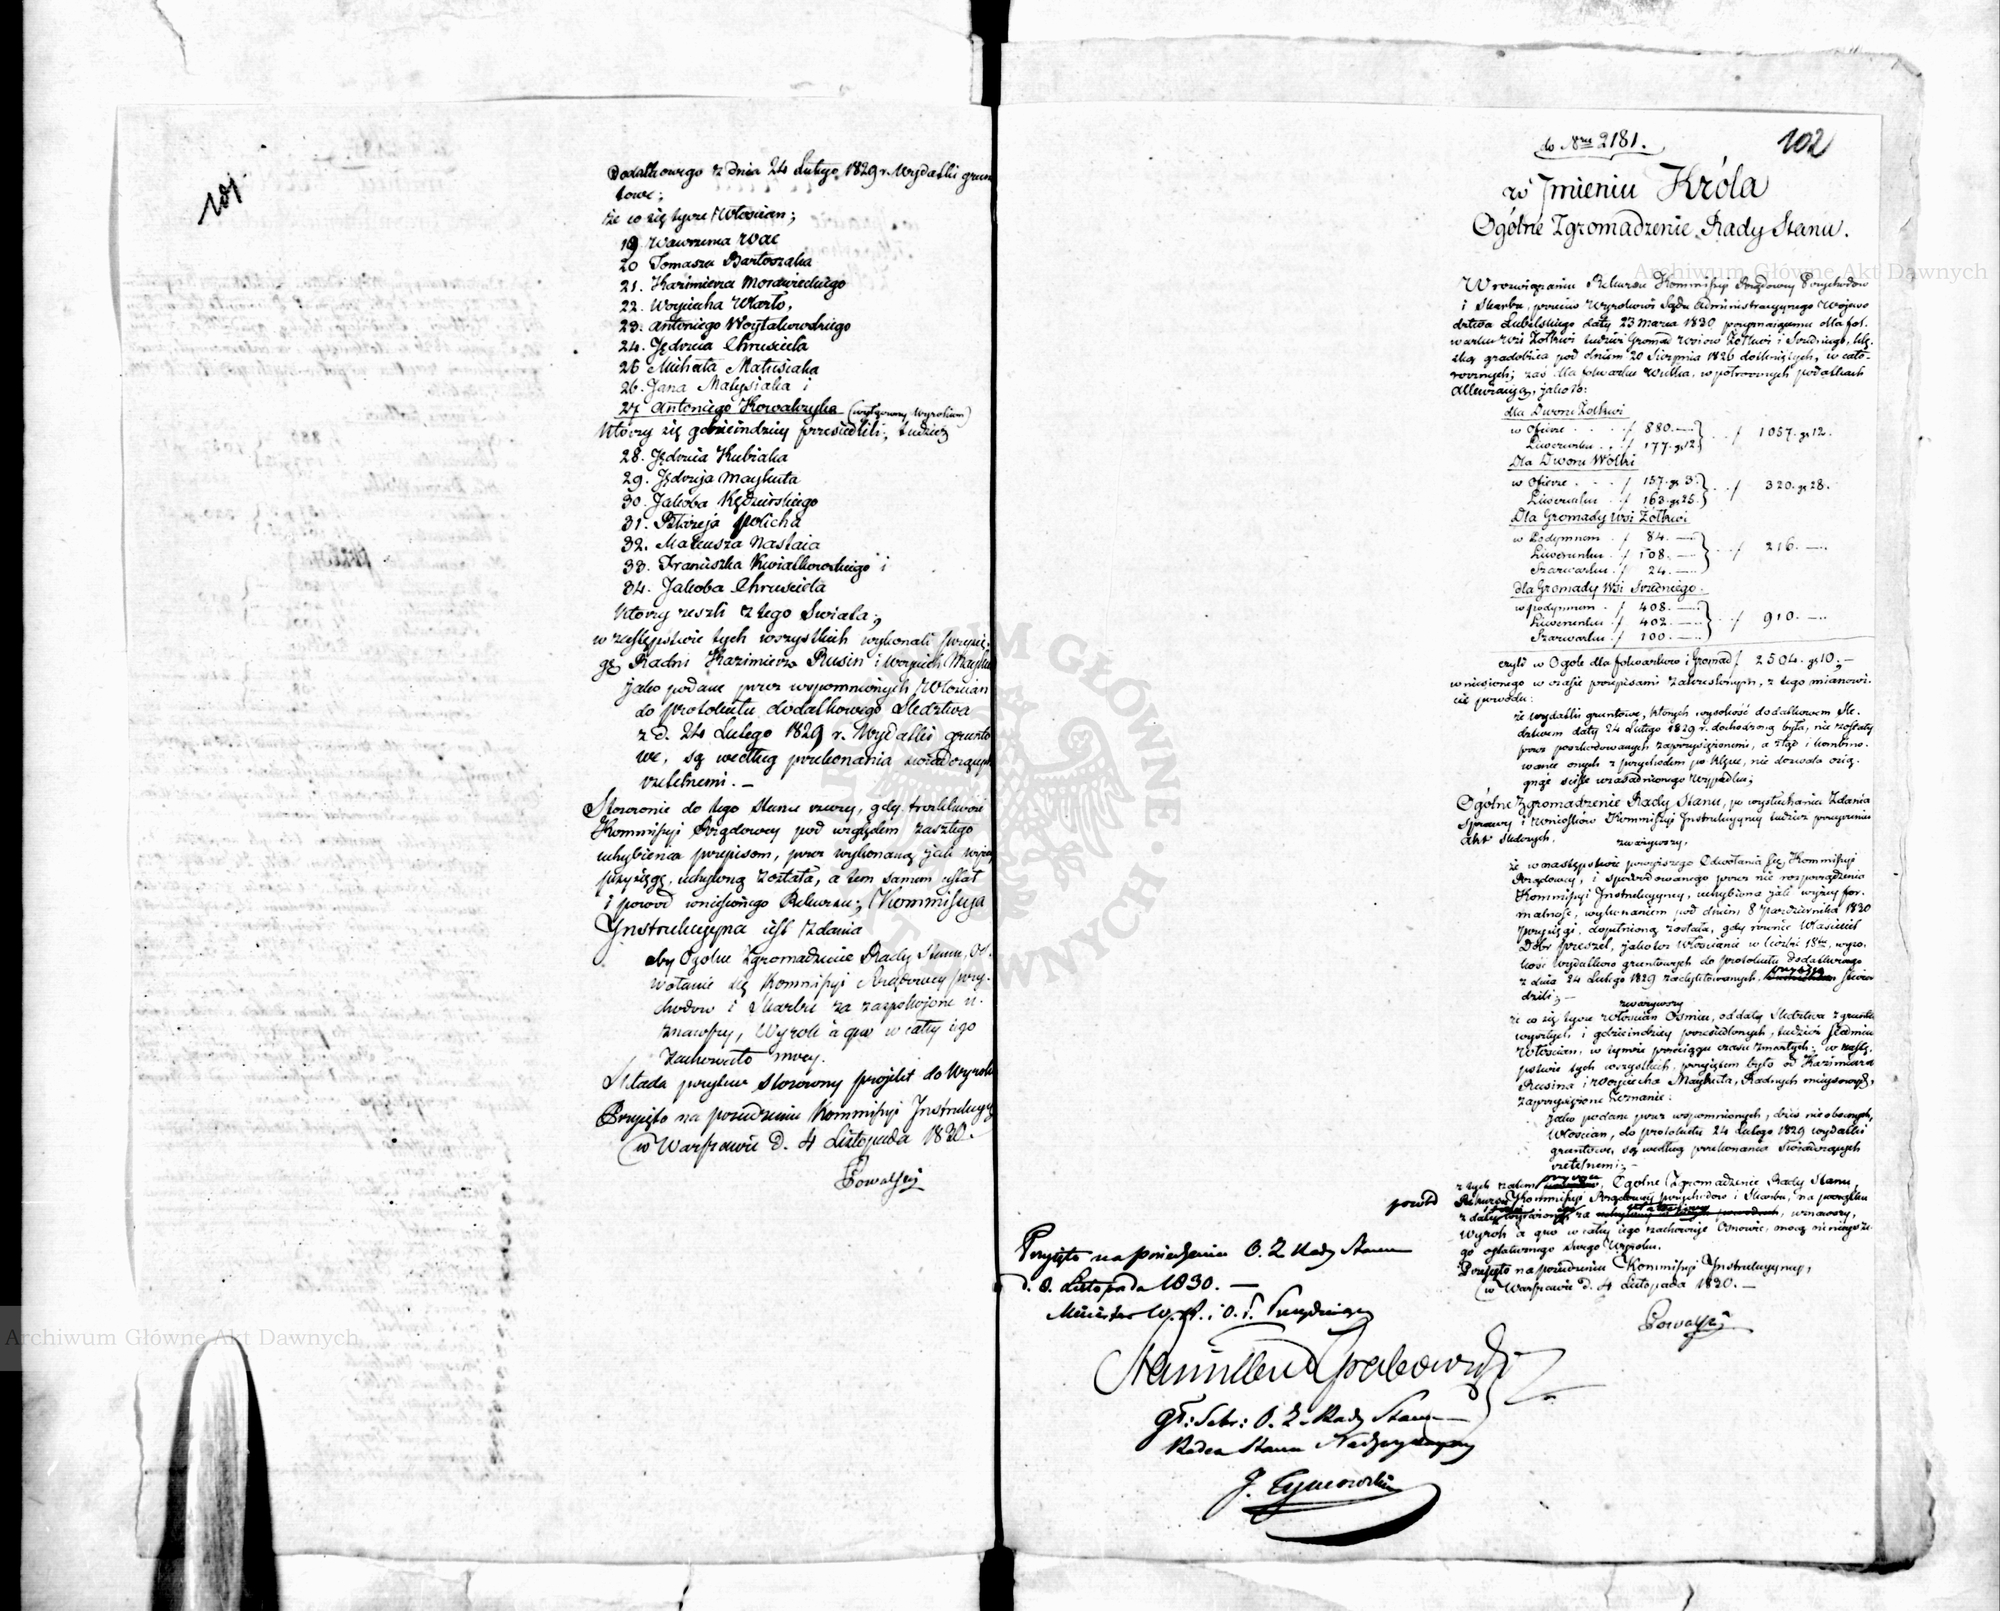 101.
Dodatkowego z dnia 24 Lutego 1829 r. Wydatki grun
towe;
że co się tycze Włościan;
19 Wawrzena Wac
20 Tomasza Bartoszaka
21. Kazimierza Morawieckiego
22. Woyciecha Warto,
23. Antoniego Woytakowskiego
24. Jędrzeia Chruściela
25 Michała Matusiaka
26. Jana Matysiaka i
27 Antoniego Kowalczyka (wyłączony Wyrokiem)
którzy się gdzieindziey przesiedlili; tudzież
28. Jędrzeia Kubiaka
29. Jędrzeja Maykuta
30. Jakoba Kędzierskiego
31. Błażeja Policha
32. Mateusza Nastaia
33. Franciszka Kwiatkowskiego i
34. Jakoba Chruściela
którzy zeszli z tego świata;
w zastępstwie tych wszystkich wykonali przysię-
gę Radni Kazimierz Rusin i Woyciech Maykut
jako podane przez wspomnionych Włościan
do protokułu dodatkowego Śledztwa
z d. 24 Lutego 1829 r. Wydatki grunto
we, są według przekonania świadczących
rzetelnemi. —
Stosownie do tego stanu rzeczy, gdy troskliwość
Kommissyi Rządowey pod względem zaszłego
uchybienia przepisom, przez wykonaną jak wyżey
przysięgę, uchyloną została, a tem samem ustał
i powód wniesionego Rekursu; Kommissya
Instrukcyyna jest zdania
aby Ogólne Zgromadzenie Rady Stanu, Od-
wołanie się Kommissyi Rządowey Przy-
chodów i Skarbu za zaspokojone u-
znawszy, Wyrok à quo w całey iego
zachowało mocy.
Składa przytem stosowny projekt do Wyroku
Przyięto na posiedzeniu Kommissyi Instrukcyy
w Warszawie d. 4 Listopada 1830.
do Nru 2181.
102
w Jmieniu Króla
Ogólne Zgromadzenie Rady Stanu.
W rozwiązaniu Rekursu Kommissyi Rządowey Przychodów
i Skarbu, przeciw Wyrokowi Sądu Administracyynego Wojewó
dztwa Lubelskiego daty 23 Marca 1830 przyznaiącemu dla fol-
warku wsi Żółkwi tudzież Gromad wsiów Żółkwi i Średniego, klę-
ską gradobicia pod dniem 20 Sierpnia 1826 dotkniętych, w cało-
rocznych; zaś dla folwarku Wólka, w półrocznych podatkach
Allewiacyą, jako to:
dla Dworu Żółkwi
w Ofierze . . . f 880. —
Liwerunku . . f 177. gr 12 } . . f 1057. gr 12.
Dla Dworu Wólki
w Ofierze . . . f 157. gr 3.
Liwerunku . f 163. gr 25. } . . f 320. gr 28.
Dla Gromady Wsi Żółkwi
w Podymnem . f 84. —
Liwerunku . f 108. —
Szarwarku . f 24. — } . . f 216. —.
dla Gromady Wsi Średniego.
w podymnem . f 408. —
Liwerunku . f 402. —
Szarwarku . f 100. — } . . f 910. —.
czyli w Ogóle dla folwarków i Gromad f 2504. gr 10. —
wniesionego w czasie przepisami zakreślonym, z tego mianowi-
cie powodu:
że wydatki gruntowe, których wysokość dodatkowem Śle-
dztwem daty 24 Lutego 1829 r. dochodzoną była, nie zostały
przez poszkodowanych zaprzysiężonemi, a ztąd i kombino-
wanie onych z przychodem po klęsce, nie dozwala osią-
gnąć ściśle uzasadnionego Wypadku;
Ogólne Zgromadzenie Rady Stanu, po wysłuchaniu Zdania
Sprawy i Wniosków Kommissyi Instrukcyyney tudzież przeyrzeniu
Akt śledczych,
zważywszy,
że w następstwie powyższego Odwołania się Kommissyi
Rządowey, i spowodowanego przez nie rozporządzenia
Kommissyi Instrukcyyney, uchybiona jak wyżey for-
malność, wykonaniem pod dniem 8 Października 1830
Przysięgi, dopełnioną została, gdy równie Właściciel
Dóbr Preszel, jako też Włościanie w liczbie 18tu, wyso-
kość Wydatków gruntowych do protokułu dodatkowego
z dnia 24 Lutego 1829 zadyktowanych, przysięgą stwier
dzili; —
zważywszy
że co się tycze Włościan Ośmiu, od daty Śledztwa z gruntu
wyszłych i gdzieindziey przesiedlonych, tudzież Siedmiu
Włościan, w tymże przeciągu czasu zmarłych; w zastę-
pstwie tych wszystkich, przyjętem było od Kazimierza
Rusina i Woyciecha Maykuta, Radnych miejscowych,
zaprzysiężone Zeznanie:
jako podane przez wspomnionych, dziś nieobecnych,
Włościan, do protokułu 24 Lutego 1829 wydatki
gruntowe, są według przekonania świadczących
rzetelnemi; —
z tych zatem przyczyn, Ogólne Zgromadzenie Rady Stanu,
powód Rekursu Kommissyi Rządowey Przychodów i Skarbu, na początku
uznawszy,
Wyrok à quo w całey iego zachowuje Osnowie, mocą ninieysze-
go ostatecznego swego Wyroku.
Przyięto na posiedzeniu Kommissyi Instrukcyyney,
w Warszawie d. 4 Listopada 1830. —
Przyięto na posiedzeniu O. Z Rady Stanu
d. 8. Listopada 1830. —
Minister W. R. i O. P. Prezyduiący
Stanisław Grabowski
gł: Sekr: O. Z. Rady Stanu
Radca Stanu Nadzwyczayny
J. Tymowski
Archiwum Główne Akt Dawnych
Archiwum Główne Akt Dawnych